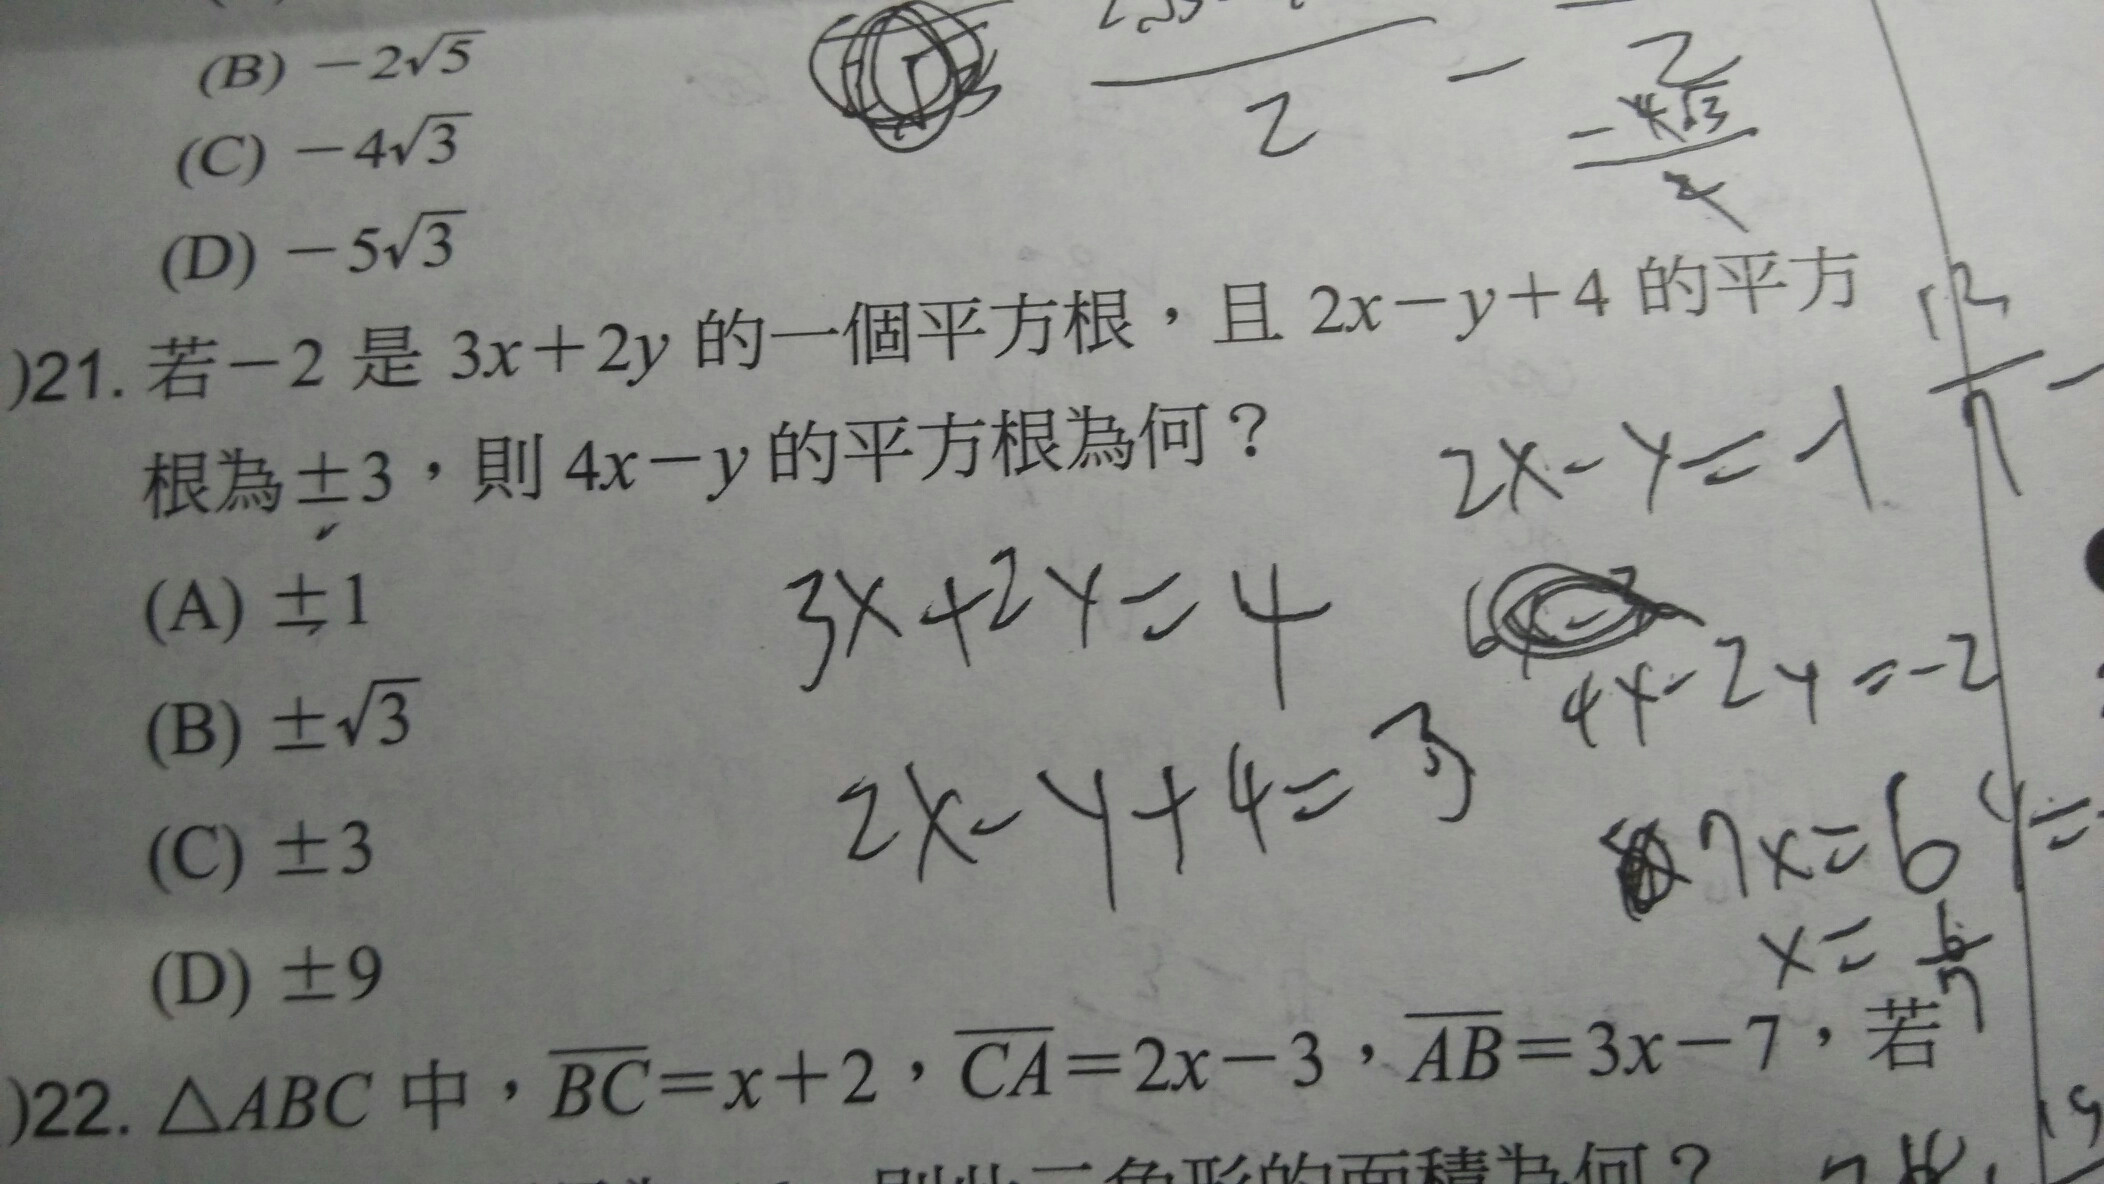 (B) －2√5
(C) －4√3
(D) －5√3
2
2
－4√3
2
)21. 若－2 是 3x＋2y 的一個平方根，且 2x－y＋4 的平方
根為±3，則 4x－y 的平方根為何？
(A) ±1
(B) ±√3
(C) ±3
(D) ±9
12
7
2x－y＝－1
3x＋2y＝4
4x－2y＝－2
2x－y＋4＝3
7x＝6
y＝
x＝
)22. △ABC 中，BC＝x＋2，CA＝2x－3，AB＝3x－7，若
角形的面積為何？